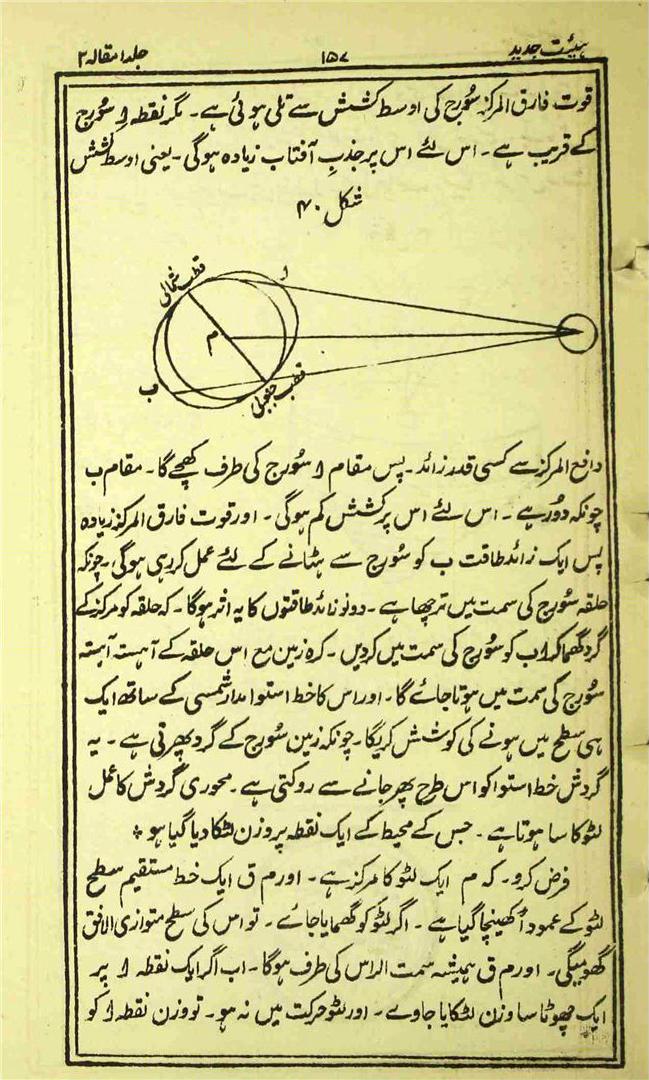 ہیئت جدید ۱۵۷ جلد۱ مقالہ ۲
قوت فارق المرکز سُورج کی اوسط کشش سے تلی ہوئی ہے۔ مگر نقطہ ا سُورج
کے قریب ہے۔ اس لئے اس پر جذبِ آفتاب زیادہ ہوگی۔ یعنی اوسط کشش
شکل ۴۰
قطب شمالی
ا
م
ب
قطب جنوبی
دافع المرکز سے کسی قدر زائد۔ پس مقام ا سُورج کی طرف کھچے گا۔ مقام ب
چونکہ دُور ہے۔ اس لئے اس پر کشش کم ہوگی۔ اور قوت فارق المرکز زیادہ
پس ایک زائد طاقت ب کو سُورج سے ہٹانے کے لئے عمل کر رہی ہوگی۔ چونکہ
حلقہ سُورج کی سمت میں ترچھا ہے۔ دونو زائد طاقتوں کا یہ اثر ہوگا۔ کہ حلقہ کو مرکز کے
گرد گھما کر اب کو سُورج کی سمت میں کردیں۔ کرہ زمین مع اس حلقہ کے آہستہ آہستہ
سُورج کی سمت میں ہوتا جائے گا۔ اور اس کا خط استوا مدار شمسی کے ساتھ ایک
ہی سطح میں ہونے کی کوشش کریگا۔ چونکہ زمین سُورج کے گرد پھرتی ہے۔ یہ
گردش خط استوا کو اس طرح پھر جانے سے روکتی ہے۔ محوری گردش کا عمل
لٹو کا سا ہوتا ہے۔ جس کے محیط کے ایک نقطہ پر وزن لٹکا دیا گیا ہو *
فرض کرو۔ کہ م ایک لٹو کا مرکز ہے۔ اور م ق ایک خط مستقیم سطح
لٹو کے عموداً کھینچا گیا ہے۔ اگر لٹو کو گھمایا جائے۔ تو اس کی سطح متوازی الافق
گھومیگی۔ اور م ق ہمیشہ سمت الراس کی طرف ہوگا۔ اب اگر ایک نقطہ ا پر
ایک چھوٹا سا وزن لٹکایا جاوے۔ اور لٹو حرکت میں نہ ہو۔ تو وزن نقطہ ا کو